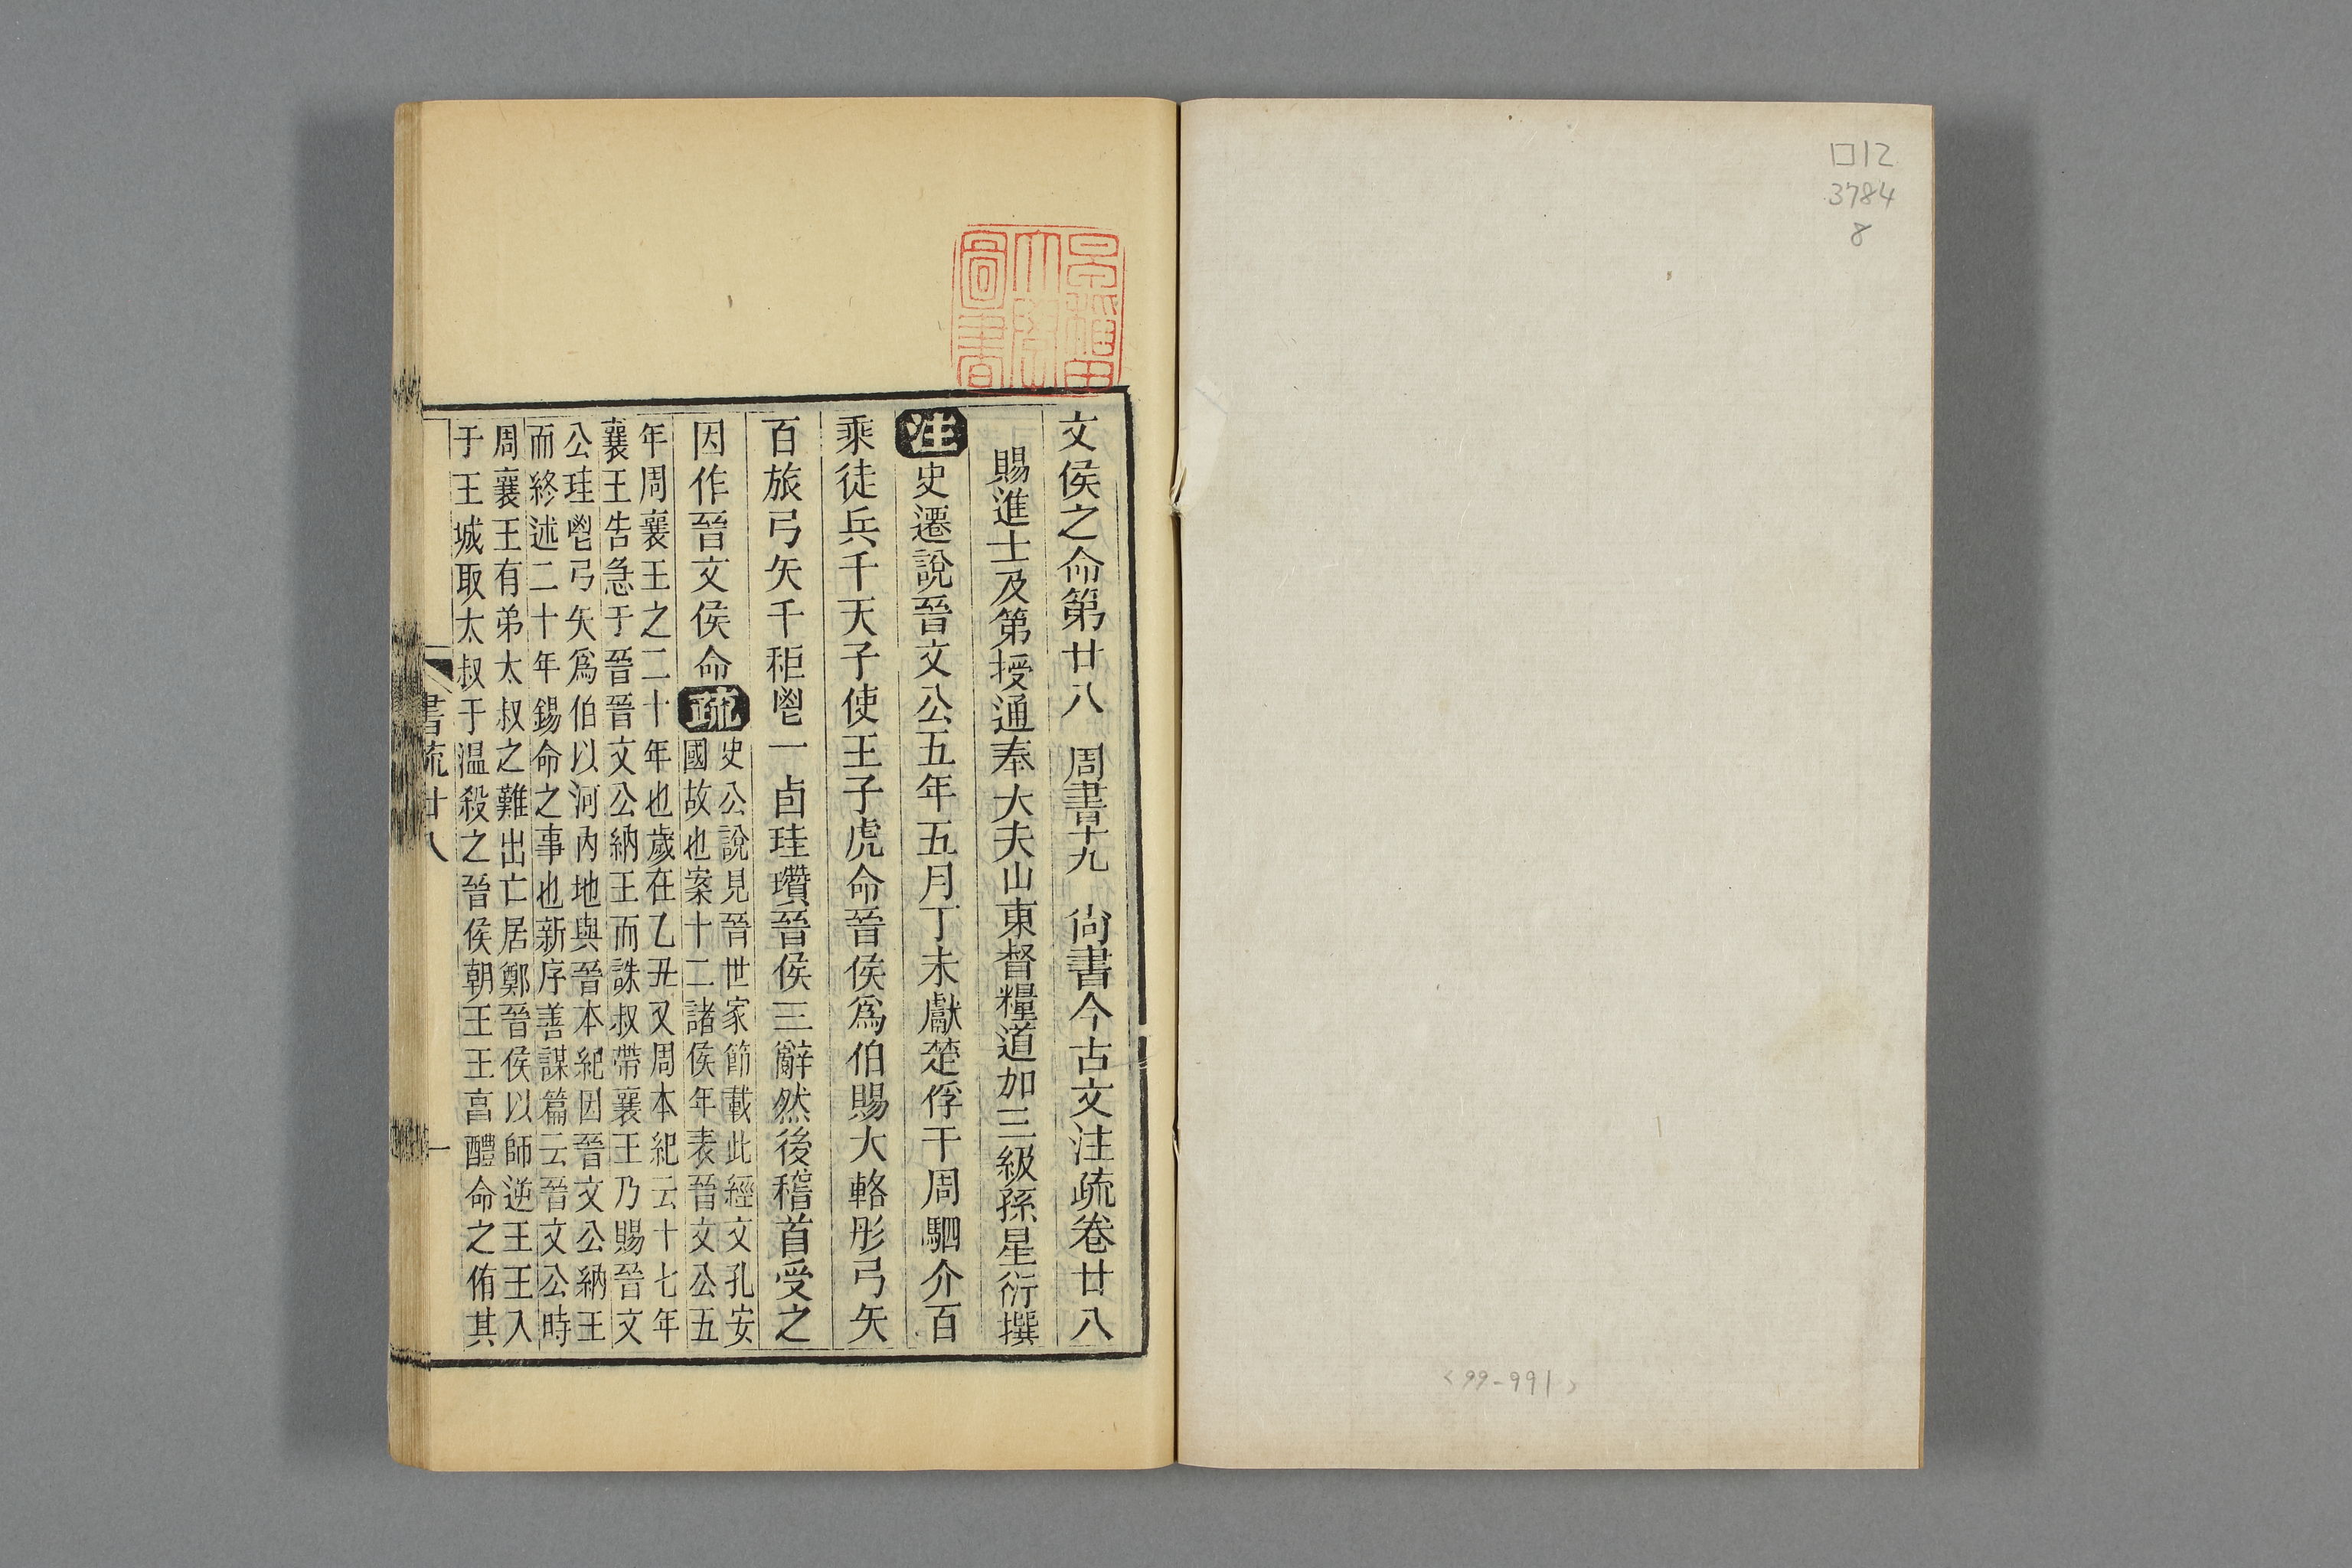 口12
3784
8
<99-991>
早稲田
大學
圖書
文侯之命第廿八　周書十九　尙書今古文注疏卷廿八
賜進士及第授通奉大夫山東督糧道加三級孫星衍撰
注史遷說晉文公五年五月丁未獻楚俘于周駟介百
乘徒兵千天子使王子虎命晉侯爲伯賜大輅彤弓矢
百旅弓矢千秬鬯一卣珪瓚晉侯三辭然後稽首受之
因作晉文侯命疏
史公說見晉世家節載此經文孔安
國故也案十二諸侯年表晉文公五
年周襄王之二十年也歲在乙丑又周本紀云十七年
襄王告急于晉晉文公納王而誅叔帶襄王乃賜晉文
公珪鬯弓矢爲伯以河內地與晉本紀因晉文公納王
而終述二十年錫命之事也新序善謀篇云晉文公時
周襄王有弟太叔之難出亡居鄭晉侯以師逆王王入
于王城取太叔于温殺之晉侯朝王王亯醴命之侑其
書疏廿八
一